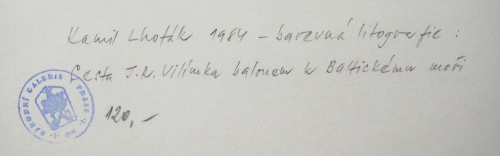 Kamil Lhoták 1984 – barevná litografie :
Cesta J. R. Vilímka balonem k Baltickému moři
NÁRODNÍ GALERIE V PRAZE
120,–